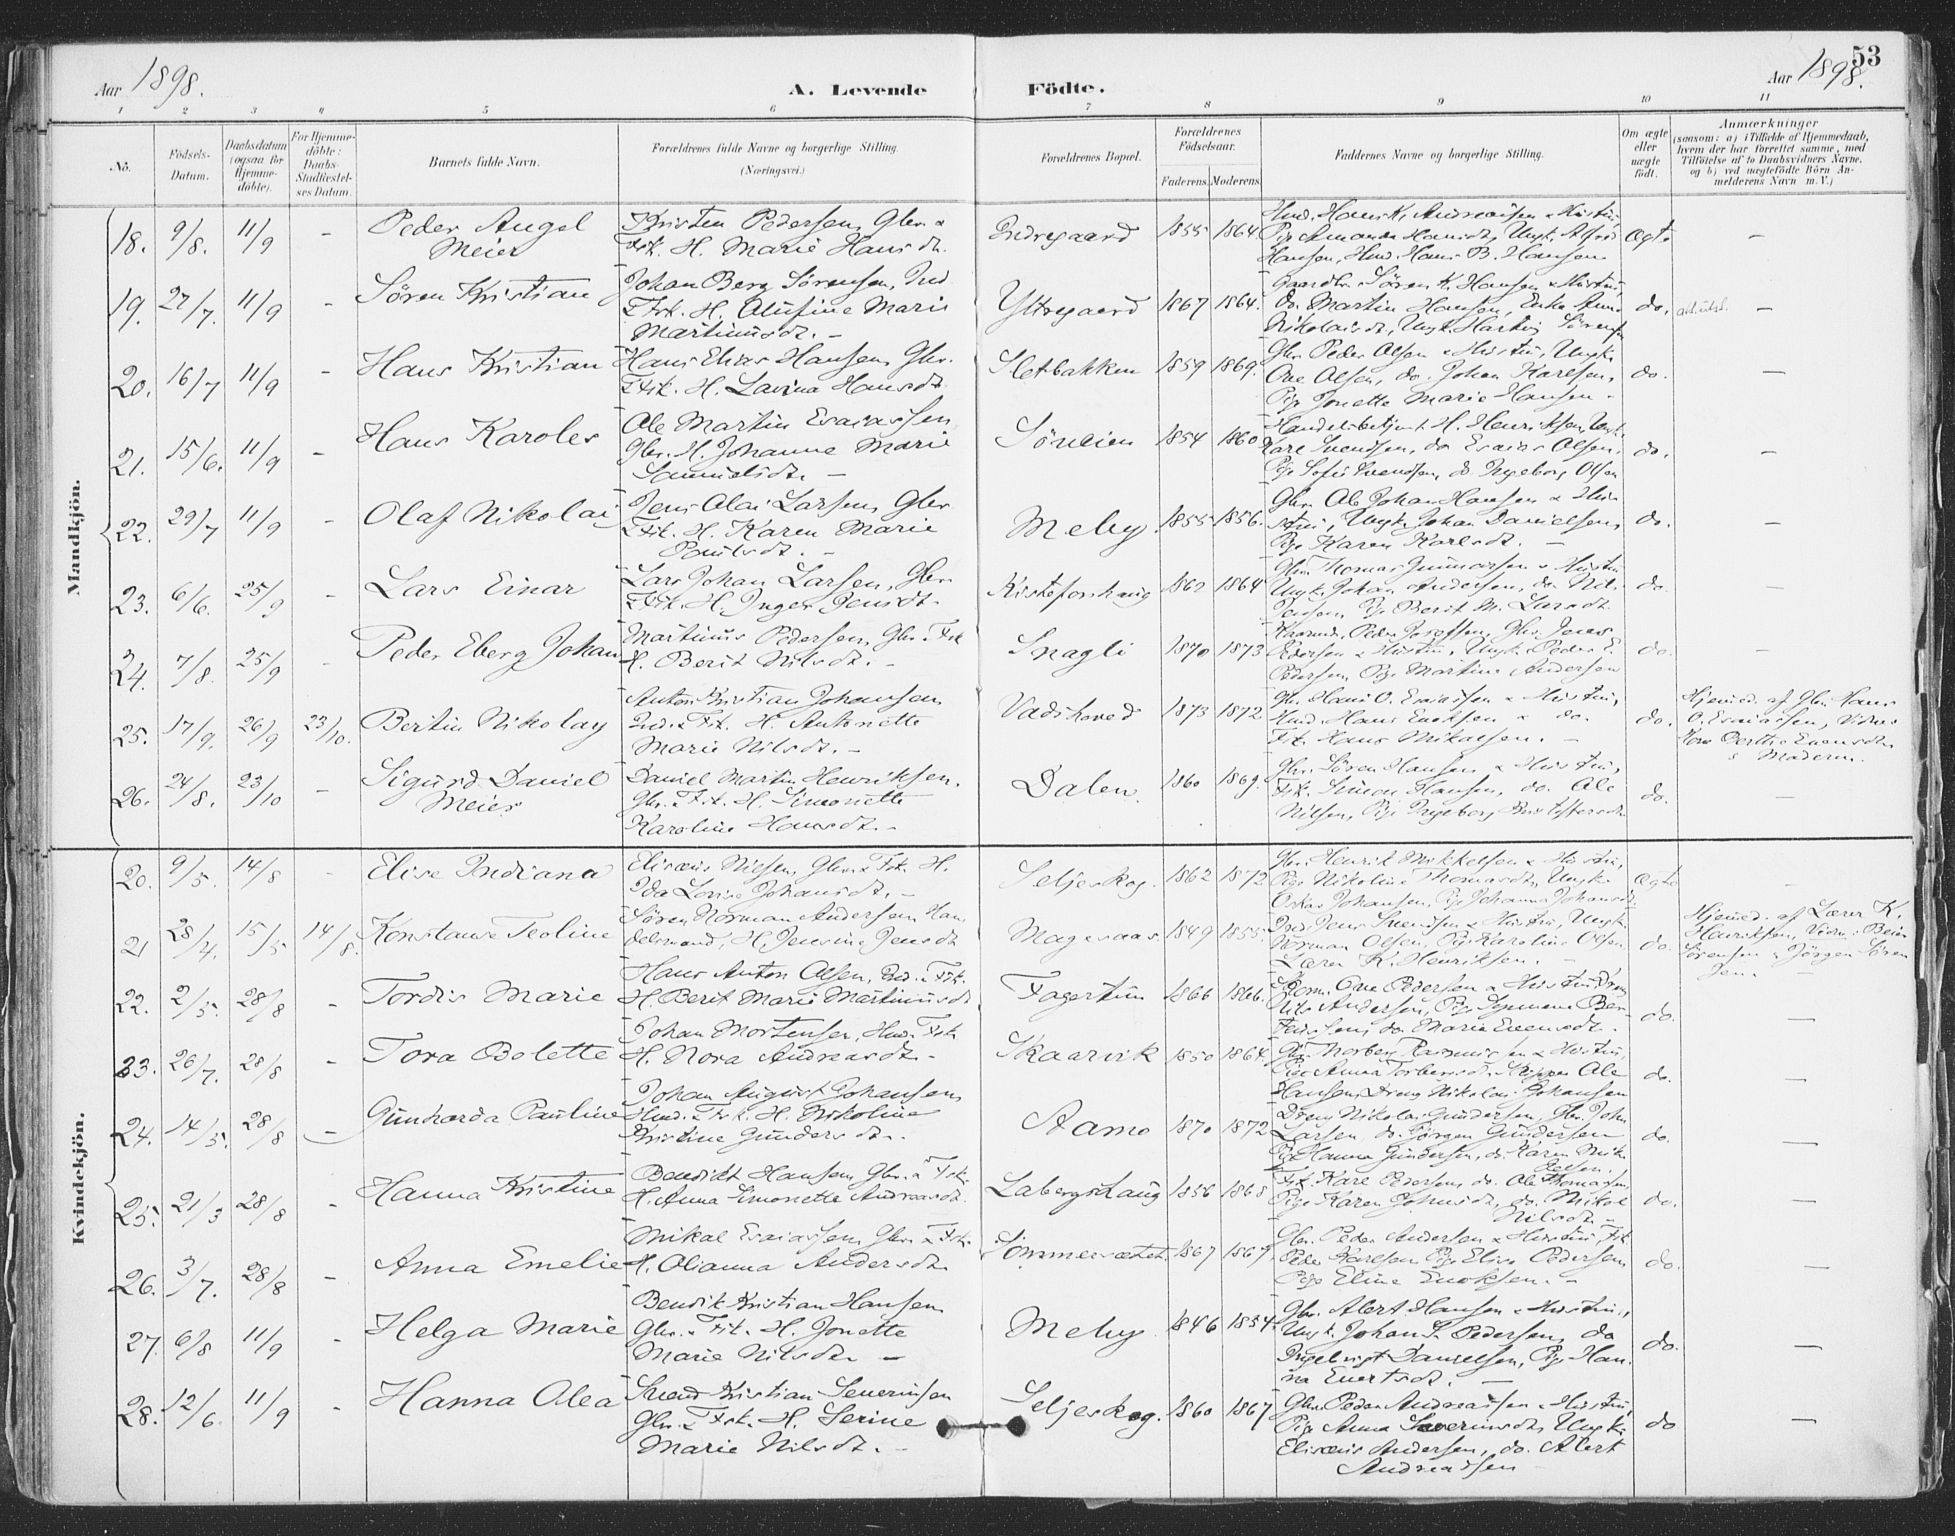 53
Aar 1898.
A. Levende Födte.
Aar 1898.
1 2 3 4 5 6 7 8 9 10 11
No.
Födsels-Datum.
Daabsdatum (ogsaa for Hjemmedöbte).
For Hjemmedöbte: Daabs-Stadfæstelses Datum.
Barnets fulde Navn.
Forældrenes fulde Navne og borgerlige Stilling.
(Næringsvei.)
Forældrenes Bopæl.
Forældrenes Födselsaar.
Faderens. Moderens.
Faddernes Navne og borgerlige Stilling.
Om ægte eller uægte födt.
Anmærkninger
(saasom: a) i Tilfælde af Hjemmedaab,
hvem der har forrettet samme, med
Tilföielse af to Daabsvidners Navne.
og b) ved uægtefödte Börn Anmelderens Navn m. V.)
Mandkjön.
18. 9/8. 11/9 - Peder Angel Meier
Kristen Pedersen, Gbr. &
Fisk. H. Marie Hansdt.
Indregaard 1855 1864.
Pige Amanda Hansdt, Ungk. Alfred
Hansen, Hmd. Hans B. Hansen
ægte -
19. 27/7. 11/9 - Sören Kristian
Johan Berg Sörensen, Ind.
& Fsk. H. Alufine Marie
Martinusdt. -
Yttregaard 1867 1864.
Gaardbr. Sören K. Hansen & Hustru,
do. Martin Hansen, Enke Anne
Nikolaisdt, Ungk. Hartvig Sörensen
do. -
20. 16/7 11/9 - Hans Kristian
Hans Elias Hansen, Gbr.
& Fsk. H. Lavina Hansdt.
Sletbakken 1859 1869.
Gbr. Peder Olsen & Hustru, Ungk.
Ove Olsen, do. Johan Karlsen,
Pige Jonette Marie Hansen -
do. -
21. 15/6. 11/9 - Hans Karoles
Ole Martin Esaiassen
Gbr. H. Johanne Marie
Samuelsdt. -
Sörveien 1854 1860
Handelsbetjent H. Henriksen, Ungk.
Karl Svendsen, do Esaias Olsen,
Pige Sofie Svendsen, do Ingeborg Olsen
do. -
22. 29/7 11/9 - Olaf Nikolai
Jens Olai Larsen, Gbr.
& Fsk. H. Karen Marie
Paulsdt. -
Meby 1855 1856.
Gbr. Ole Johan Hansen & Hustru,
Ungk. Johan Danielsen,
Pige Karen Karlsdt. -
do. -
23. 6/6. 25/9 - Lars Einar
Lars Johan Larsen, Gbr
& Fsk. H. Inger Jensdt.
1862 1864
Gbr. Thomas Gunnarsen & Hustru
Ungk. Johan Andersen, do Nil.
Jensen, Pige Berit M. Larsdt.
do. -
24. 7/8. 25/9 - Peder Eberg Johan
Martinus Pedersen, Gbr. & Fsk
H. Berit Nilsdt. -
Snagli 1870 1873
Kaarmd. Peder Josefsen, Gbr. Jens
Pedersen & Hustru, Ungk. Peder E.
Pedersen, Pige Martine Andersen
do. -
25. 17/9. 26/9 23/10. Bertin Nikolay
Anton Kristian Johansen
Ind. & Fsk. H. Antonette
Marie Nilsdt. -
Vadshoved 1873 1872
Gbr. Hans O. Esaiassen & Hustru,
Hmd. Hans Enoksen & do.
Fsk. Hans Mikalsen. -
do.
Hjemmed. af Gbr. Hans
O. Esaiassen, Vidner
& Moderen.
26. 24/8. 23/10 - Sigurd Daniel Meier
Daniel Martin Henriksen,
Gbr. & Fsk. H. Simonette
Karoline Hansdt. -
Dalen. 1860 1869.
Gbr. Sören Hansen & Hustru,
Fsk. Simon Hansen, do. Ole
Nilsen, Pige Ingeborg Kristoffersdt.
do. -
Kvindekjön.
20. 9/5. 14/8 - Elise Indiana
Elisæus Nilsen, Gbr. & Fsk. H.
Ida Lovise Johansdt. -
Seljeskog. 1862 1872
Gbr. Henrik Mikkelsen & Hustru,
Pige Nikoline Thomasdt, Ungk.
Oskar Johansen, Pige Johanna Johansdt.
ægte -
21 28/4. 15/5 14/8. Konstanse Teoline
Sören Norman Andersen Han
delsmand, H. Jensine Jensdt
Magesaas. 1849 1855.
Ind. Jens Svendsen & Hustru, Ungk.
Norman Olsen, Pige Karoline Olsen
Lærer K. Henriksen. -
do.
Hjemmed. af Lærer K.
Henriksen, Vidn.:
Sörensen & Jörgen Sören
sen. -
22. 2/5. 28/8 - Tordis Marie
Hans Anton Olsen, Ind. & Fsk.
H. Berit Marie Martinusdt
Fagertun 1866 1866.
Ove Pedersen & Hustru, Dreng
Nils Andersen, Pige
do. Marie Evensdt.
do. -
23. 26/7. 28/8 - Tora Bolette
Johan Mortensen, Hmd. & Fsk
H. Nora Andreasdt. -
Skaarvik 1850 1864.
Gbr. Norberg Rasmussen & Hustru,
Pige Anna Torbergsdt, Skipper Ole
Hansen, Dreng Nikolai Johansen
do. -
24. 14/5. 28/8 - Gunharda Pauline
Johan August Johansen,
Hmd. & Fsk. H. Nikoline
Kristine Gundersdt. -
Aamo 1870 1872
Dreng Nikolai Gundersen, Gbr. John
Larsen, do. Jörgen Gundersen
Pige Hanna Gundersen, do. Karen Mik
kelsen.
do. -
25. 21/3 28/8 - Hanna Kristine
Benedikt Hansen, Gbr. & Fsk.
H. Anna Simonette Andreasdt.
Labergshaug 1856 1868
Fsk. Karl Pedersen, do. Ole Thomassen,
Pige Karen Johnsdt, do. Nikol.
Nilsdt. -
do. -
26. 3/7. 28/8 - Anna Emelie
Mikal Esaiassen, Gbr. & Fsk.
H. Olianna Andersdt.
Sommersætet. 1867 1867.
Gbr. Peder Andersen & Hustru, Fsk.
Peder Karlsen, Pige Elise Pedersen
Pige Eline Enoksen. -
do. -
27. 6/8 11/9 - Helga Marie
Bendik Kristian Hansen
Gbr. & Fsk. H. Jonette
Marie Nilsdt. -
Meby. 1846 1854.
Gbr. Alert Hansen & Hustru,
Ungk. Johan S. Pedersen, do
Ingebrigt Danielsen, Pige Han
na Evertsdt. -
do. -
28. 12/6. 11/9 - Hanna Olea
Svend Kristian Severinsen
Gbr. & Fsk. H. Serine
Marie Nilsdt. -
Seljeskog. 1860 1867
Gbr. Peder Andreassen & Hustru,
Pige Anna Severinsdt, Ungk.
Elisæus Andersen, do. Alert
Andreassen -
do -